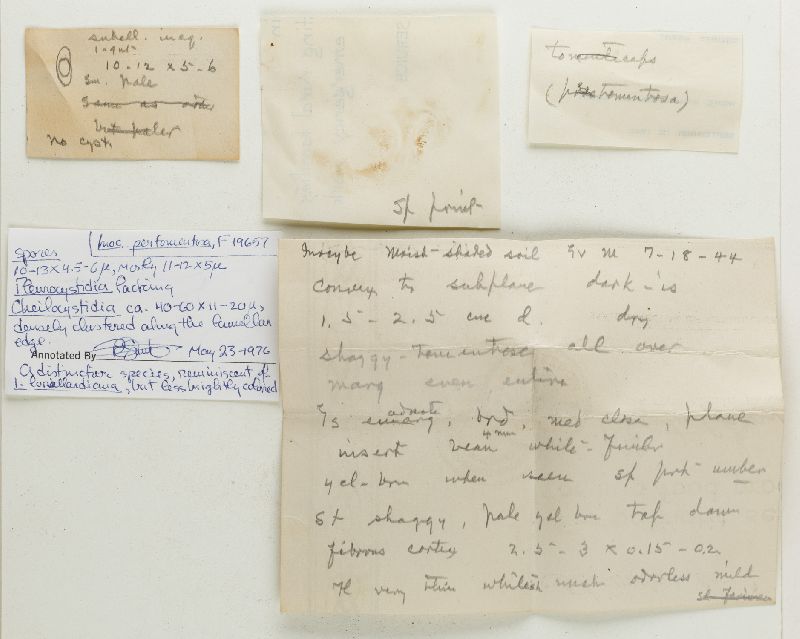 subell. ineq.
1-gut
10-12 x 5-6
sm. pale
same as
but paler
no cyst.
sp print
tomenticeps
(pertomentosa)
Inoc. pertomentosa, F 19657
spores
10-13 x 4.5-6µ, mostly 11-12 x 5µ
Pleurocystidia lacking
Cheilocystidia ca. 40-60 x 11-20µ,
densely clustered along the lamellar
edge.
Annotated By May 23-1976
A distinctive species, reminiscent of
but less brightly colored
Inocybe Moist-shaded soil Ev M 7-18-44
convex to subplane dark-is
1.5-2.5 cm d. dry
shaggy-tomentose all over
marg even, entire
Gs adnate, brd, med close, plane
4 mm
insert when white-fimbr
ycl-brn when seen sp prnt umber
St shaggy, pale yel brn top down
fibrous cortex 2.5-3 x 0.15-0.2
Fl very thin whitish odorless mild